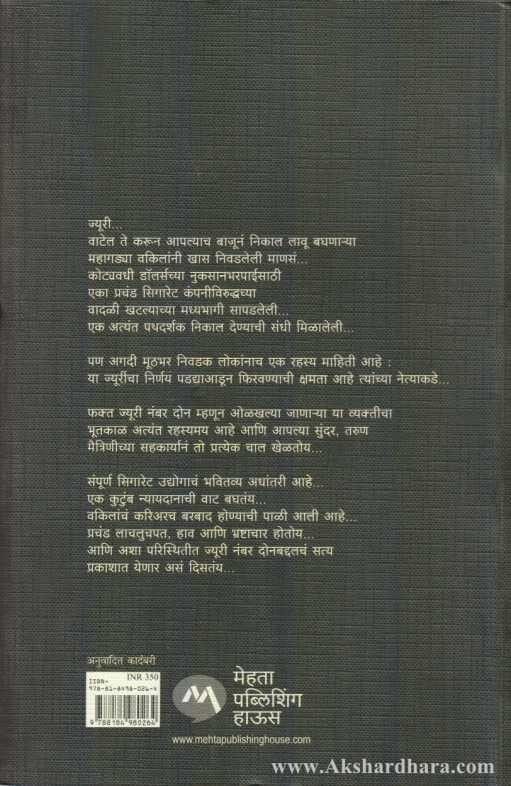 ज्यूरी...
वाटेल ते करून आपल्याच बाजूनं निकाल लावू बघणाऱ्या
महागड्या वकिलांनी खास निवडलेली माणसं...
कोट्यवधी डॉलर्सच्या नुकसानभरपाईसाठी
एका प्रचंड सिगारेट कंपनीविरुद्धच्या
वादळी खटल्याच्या मध्यभागी सापडलेली...
एक अत्यंत पथदर्शक निकाल देण्याची संधी मिळालेली...
पण अगदी मूठभर निवडक लोकांनाच एक रहस्य माहिती आहे :
या ज्यूरींचा निर्णय पडद्याआडून फिरवण्याची क्षमता आहे त्यांच्या नेत्याकडे...
फक्त ज्यूरी नंबर दोन म्हणून ओळखल्या जाणाऱ्या या व्यक्तीचा
भूतकाळ अत्यंत रहस्यमय आहे आणि आपल्या सुंदर, तरुण
मैत्रिणीच्या सहकार्यानं तो प्रत्येक चाल खेळतोय...
संपूर्ण सिगारेट उद्योगाचं भवितव्य अधांतरी आहे...
एक कुटुंब न्यायदानाची वाट बघतंय...
वकिलांचं करिअरच बरबाद होण्याची पाळी आली आहे...
प्रचंड लाचलुचपत, हाव आणि भ्रष्टाचार होतोय...
आणि अशा परिस्थितीत ज्यूरी नंबर दोनबद्दलचं सत्य
प्रकाशात येणार असं दिसतंय...
अनुवादित कादंबरी
INR 350
ISBN-
978-81-8498-026-4
9 788184 980264
मेहता
पब्लिशिंग
हाऊस
www.mehtapublishinghouse.com
www.Akshardhara.com